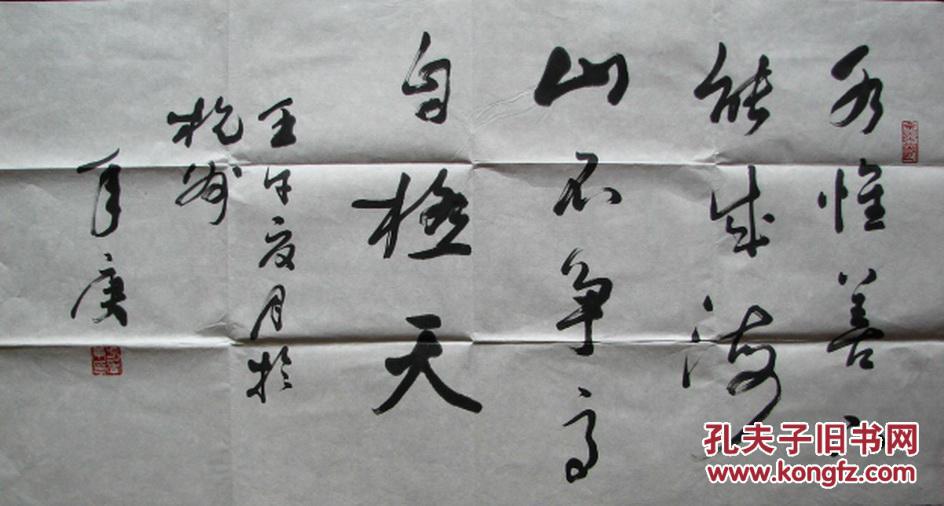 水惟善下
能成海
山不争高
自極天
壬午夏月於
杭州
年庚
孔夫子旧书网
www.kongfz.com